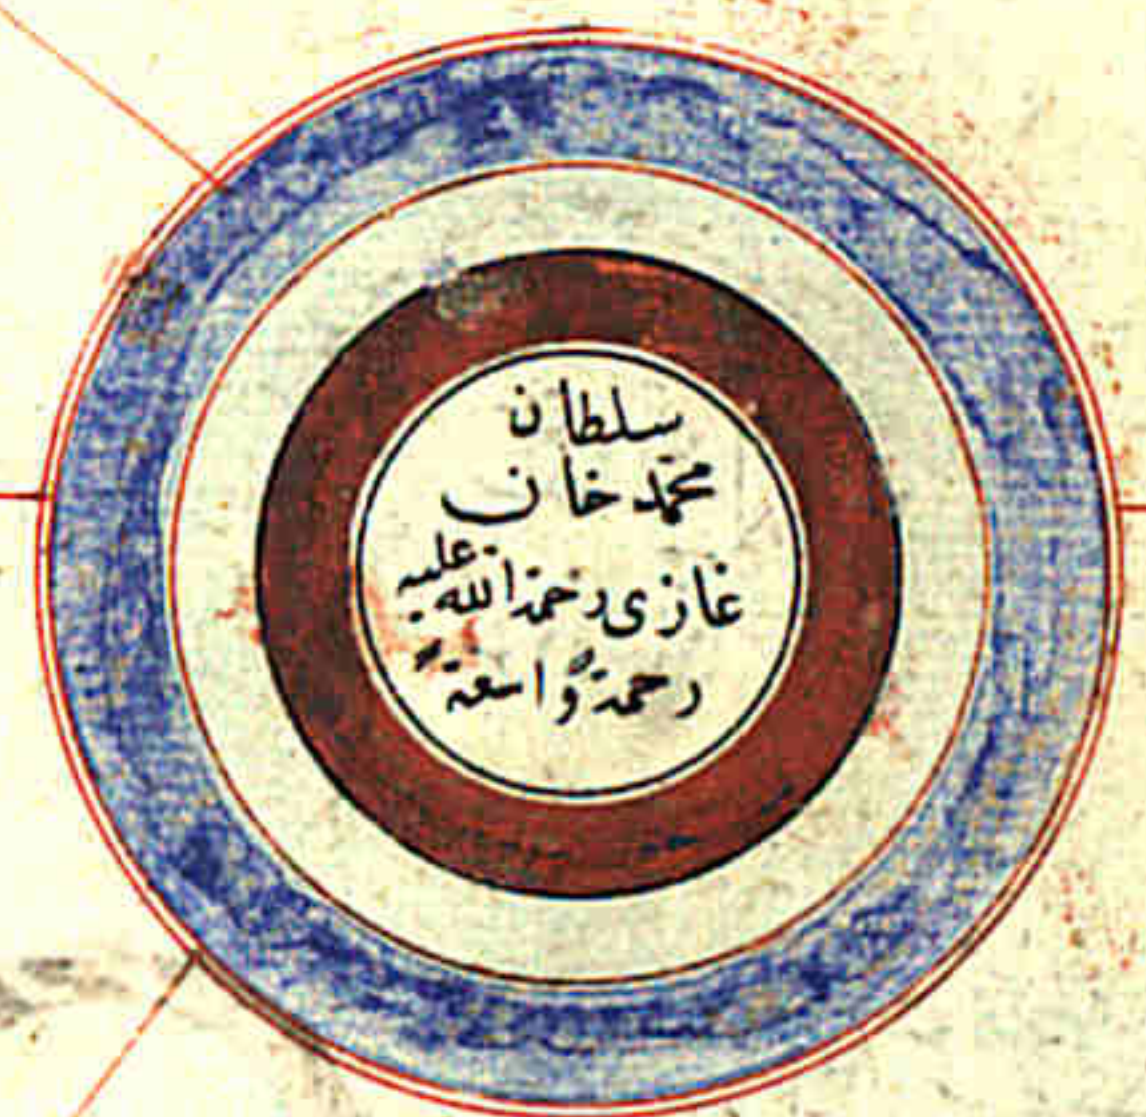 سلطان
محمّد خان
غازى رحمة الله عليه
رحمةً وّاسعةً